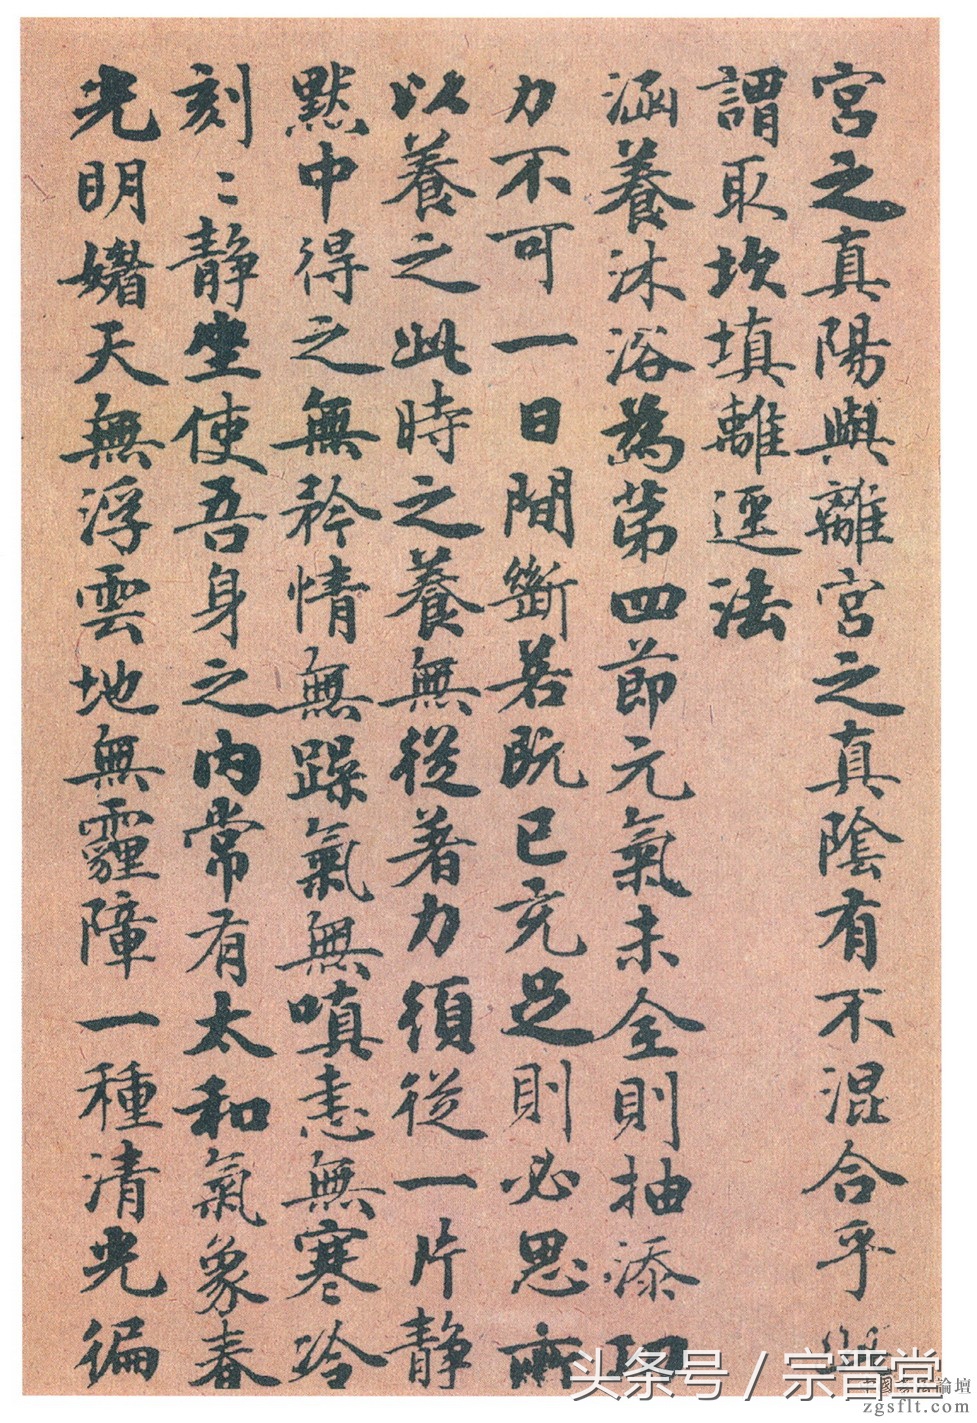 宮之真陽與離宮之真陰有不混合乎
謂取坎填離逕法
涵養沐浴為第四節元氣未全則抽添
力不可一日間斷若既已充足則必思所
以養之此時之養無從著力須從一片靜
默中得之無矜情無躁氣無嗔恚無寒冷
刻〻靜坐使吾身之內常有太和氣象春
光明媚天無浮雲地無霾障一種清光徧
头条号 / 宗晋堂
論壇
zgsflt.com